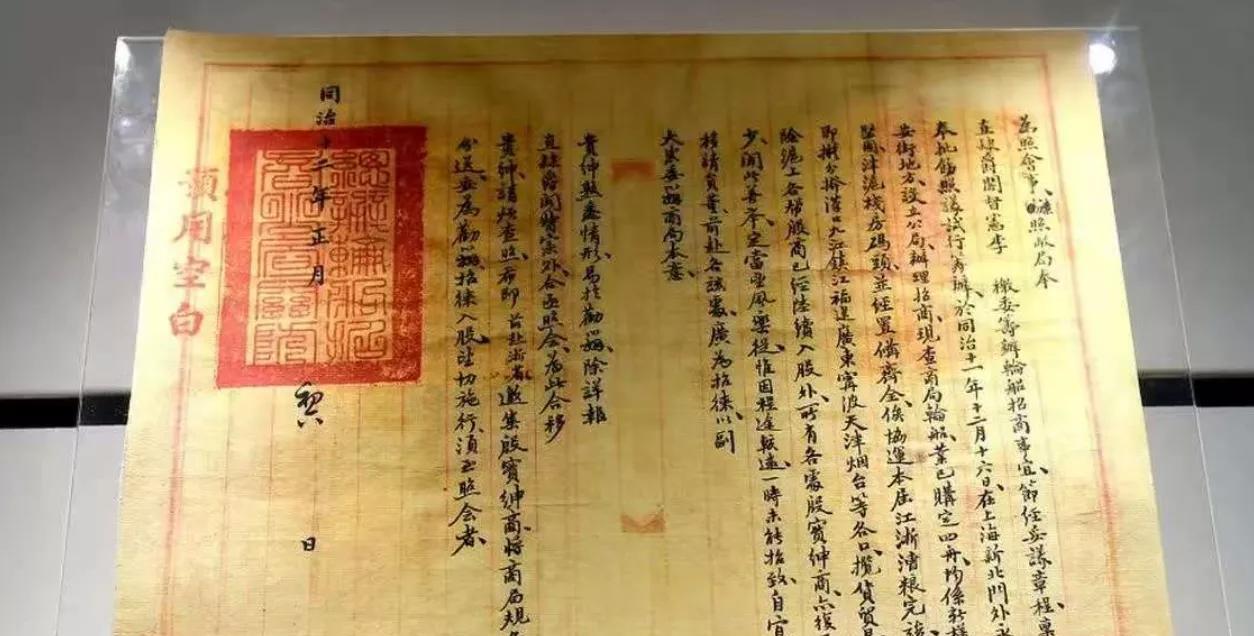 為照會事、據照敝局奉
直隸爵閣督憲李　檄委籌辦輪船招商事宜、節經妥議章程、稟
奉批飭照議試行籌辦於同治十一年十二月十六日、在上海新北門外永
安街地方設立公局、辦理招商、現查商局輪船業已購定四舟、均係新樣
堅固、津滬棧房碼頭、並經置備齊全、俟協運本屆江浙漕糧完竣
即擬分撥漢口九江鎮江福建廣東寧波天津烟台等各口攬貨貿易
除滬上各幫股商已經陸續入股外、所有各處殷實紳商、亦復不
少、聞此善舉、定當望風樂從、惟因程途較遠、一時未能招致、自宜
移請貴董、前赴各該處、廣為招徠、以副
大憲委辦商局本意
貴紳熟悉情形、易於勸辦、除詳報
直隸爵閣督憲外、合亟照會、為此合移
貴紳、請煩查照、希即前赴浙省、邀集殷實紳商、將商局規條
分送、妥為勸辦、招徠入股、望切施行、須至照會者、
同治十二年正月　日
總辦輪船招
商公局關防
預用空白